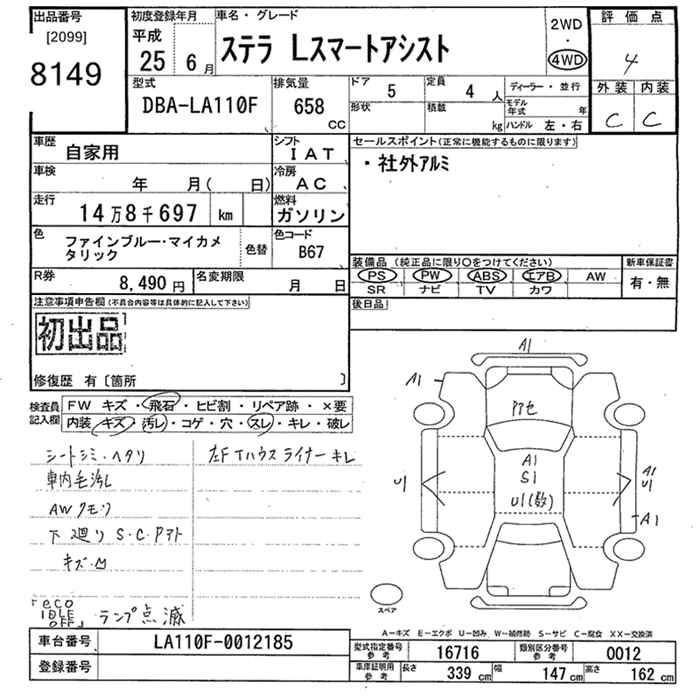 出品番号
[2099]
8149
初度登録年月
平成
25年 6月
車名・グレード
ステラ Lスマートアシスト
2WD
・
4WD
評価点
4
外装 内装
C C
型式
DBA-LA110F
排気量
658
CC
ドア 5
定員 4 人
形状
積載 kg
ディーラー・並行
モデル年式 年
ハンドル 左・右
車歴
自家用
シフト
IAT
車検
年 月( 日)
冷房
AC
走行
14万8千697 km
燃料
ガソリン
色
ファインブルー・マイカメ
タリック
色替
色コード
B67
R券
8,490円
名変期限
月 日
セールスポイント(正常に機能するものに限ります)
・社外アルミ
装備品(純正品に限り○をつけてください)
PS PW ABS エアB AW
SR ナビ TV カワ
新車保証書
有・無
後日品
注意事項申告欄(不具合内容等は具体的に記入して下さい)
初出品
修復歴 有〔箇所 〕
検査員
記入欄
FW キズ・飛石・ヒビ割・リペア跡・×要
内装 キズ・汚レ・コゲ・穴・スレ・キレ・破レ
シートシミ・ヘタリ
左F Tハウスライナー キレ
車内毛汚し
AWクモリ
下廻り S・C・Pアト
キズ・凹
「eco
IDLE
OFF」ランプ点滅
A1
A1
Pアセ
A1
S1
U1(数)
U1
A1
U1
A1
スペア
A―キズ E―エクボ U―凹み W―補修跡 S―サビ C―腐食 XX―交換済
車台番号
LA110F-0012185
登録番号
型式指定番号
参考
16716
類別区分番号
参考
0012
車庫証明用
参考
長さ 339 cm
幅 147 cm
高さ 162 cm